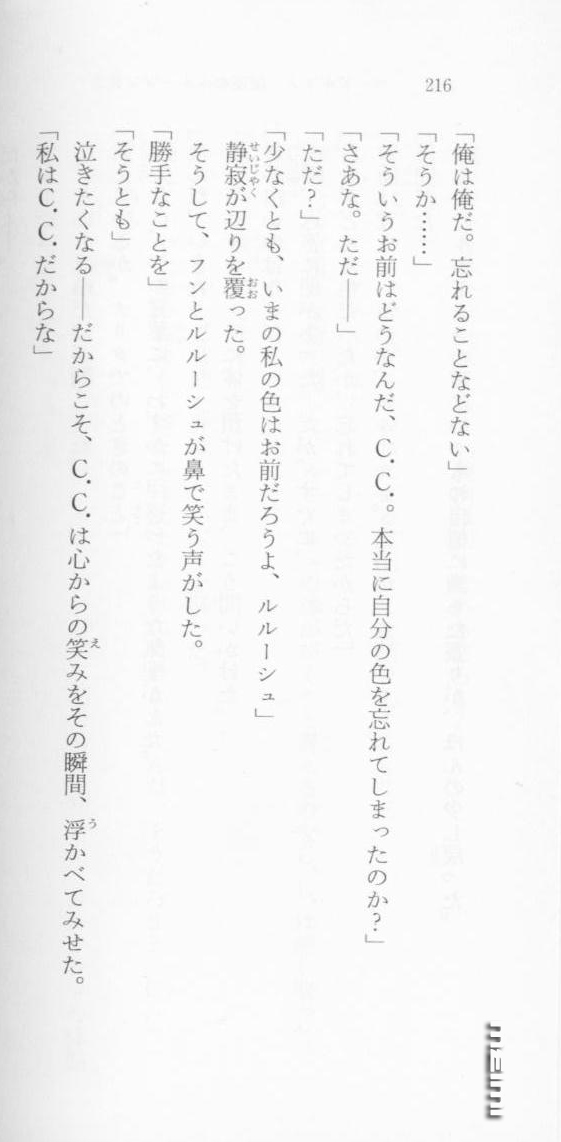 216
「俺は俺だ。忘れることなどない」
「そうか……」
「そういうお前はどうなんだ、C.C.。本当に自分の色を忘れてしまったのか?」
「さあな。ただ――」
「ただ?」
「少なくとも、いまの私の色はお前だろうよ、ルルーシュ」
静寂が辺りを覆った。
そうして、フンとルルーシュが鼻で笑う声がした。
「勝手なことを」
「そうとも」
泣きたくなる――だからこそ、C.C.は心からの笑みをその瞬間、浮かべてみせた。
「私はC.C.だからな」